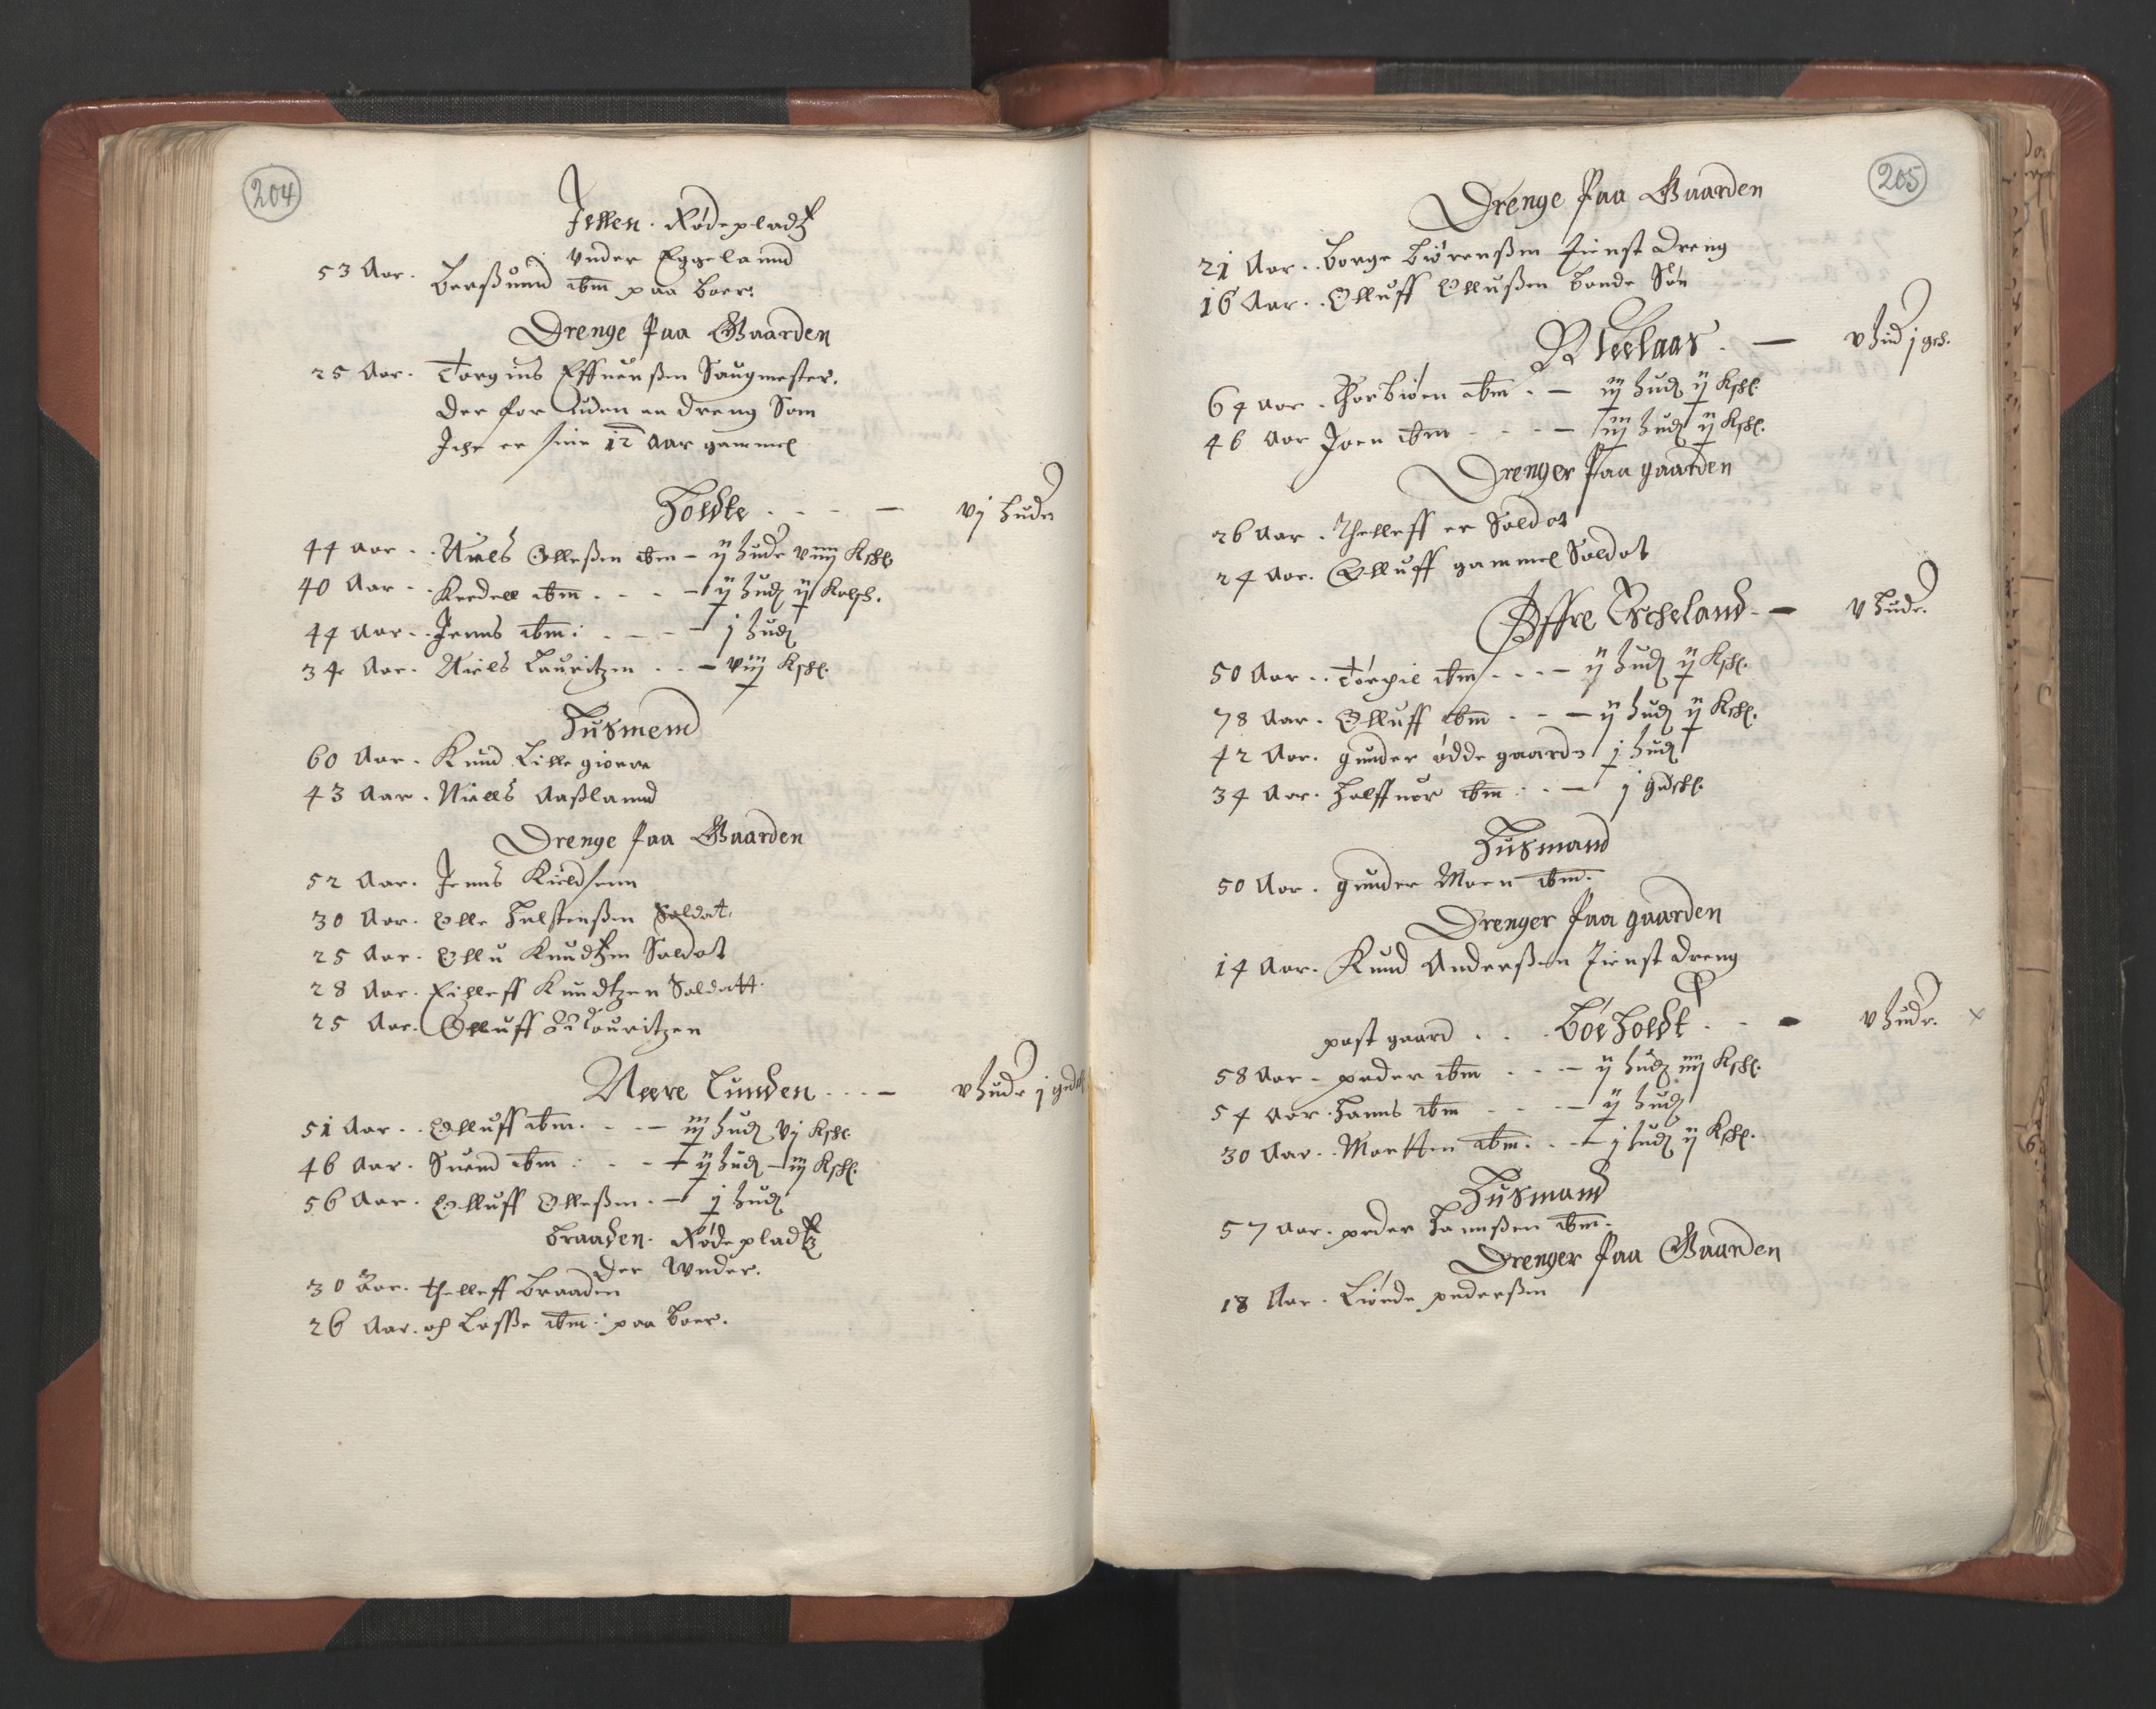 204
Jellen. Rødepladtz
vnder Eggelannd
53 Aar. Berßuend ibm paa boer.
Drenge Paa Gaarden
25 Aar. Torgius Effuenßen Saugmester.
Der for uden en dreng Som
Iche er sine 12 Aar gammel
Holdte . . . — vj huder
44 aar . . Niels Olleßen ibm – ij hude viiij Kschl
40 Aar . . Kredell ibm . . . – ij hud ij Kalsch.
44 aar . . Jenns ibm: . . . – j hud
34 Aar. Niels Lauritzen . . – viij Kschl.
Husmend
60 Aar. Knud Lille gierre
43 Aar. Niells Aaßlannd
Drenge paa Gaarden
52 Aar. Jenns Kieldsenn
30 Aar. Olle Halstenßen Soldat.
25 Aar. Ollu Knudtzen Soldat
28 Aar. Eilleff Knudtzen Soldatt.
25 Aar. Olluff Lauritzen
Neere Lunden . . . — v hude j
51 Aar. . Olluff ibm. . . — iij hud vj Kschl
46 Aar. Suend ibm : . . – ij hud – iij Kschl.
56 Aar. Olluff Olleßen. – j hud
Braaden. Rødepladtz
der Wnder.
30 Aar. Thelleff Braaden
26 Aar. och Lasse ibm: paa boer.
205
Drenge paa Gaarden
21 Aar. . Borge Biørenßen tienste dreng
16 Aar. . Olluff Ollußen bonde Søn
— v hud j
64 aar . Thorbiøen ibm . — iij hud ij Kschl.
46 aar Joen ibm . . . — iij hud ij Kschl.
Drenger paa gaarden
26 Aar . Thelleff er Soldat
24 Aar. Olluff gammel Soldat
Øffre Escheland — v hude.
50 Aar . . Torpie ibm . . . – ij hud ij Kschl.
78 Aar. Olluff ibm . . — ij hud ij Kschl.
42 Aar. gunder ødde gaard j hud
34 Aar. Halffuor ibm : . — j
Husmand
50 Aar. gunder Moen ibm.
Drenger paa gaarden
14 Aar. Knud Anderßen tienst dreng
post gaard . . . Bøe Holdt . . — v hude. ×
58 Aar – peder ibm . . . – ij hud iiij Kschl.
54 Aar. Hanns ibm . . . – ij hud
30 Aar. . Mortten ibm. . – j hud ij Kschl.
Husmand
57 Aar. peder Hannßen ibm.
Drenger paa Gaarden
18 Aar. Liøede pederßen